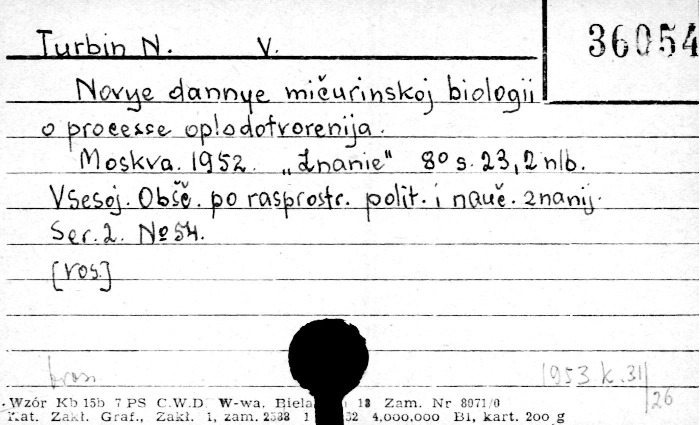 Turbin N. V.
36054
Novye dannye mičurinskoj biologii
o processe oplodotvorenija.
Moskva. 1952. „Znanie" 8° s. 23, 2 nlb.
Vsesoj. Obšč. po rasprostr. polit. i nauč. znanij.
Ser. 2. № 54.
[ros.]
1953 K. 31/26
Wzór Kb 15b 7 PS C.W.D W-wa. Biela 18 Zam. Nr 8071/0
Kat. Zakł. Graf., Zakł. 1, zam. 2588 1 52 4,000,000 Bl, kart. 200 g